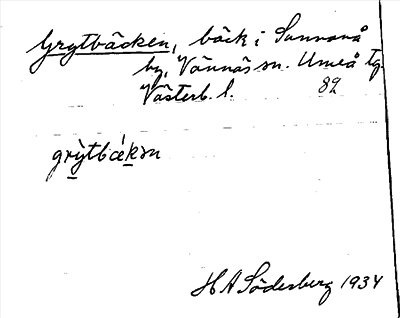 Grytbäcken, bäck i Sunnanå
by, Vännäs sn. Umeå tg.
Västerb. l. 82
grỳtbǽkən
H A Söderberg 1934